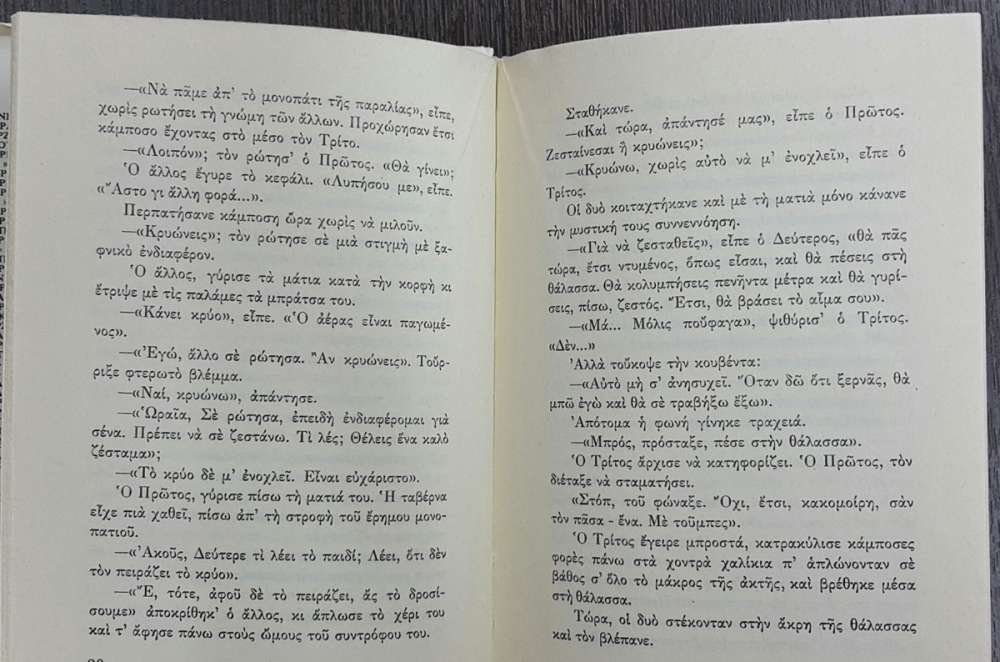 —«Νὰ πᾶμε ἀπ' τὸ μονοπάτι τῆς παραλίας», εἶπε,
χωρὶς ρωτήσει τὴ γνώμη τῶν ἄλλων. Προχώρησαν ἔτσι
κάμποσο ἔχοντας στὸ μέσο τὸν Τρίτο.
—«Λοιπόν»; τὸν ρώτησ' ὁ Πρῶτος. «Θὰ γίνει»;
Ὁ ἄλλος ἔγυρε τὸ κεφάλι. «Λυπήσου με», εἶπε.
«Ἄστο γι ἄλλη φορά...».
Περπατήσανε κάμποση ὥρα χωρὶς νὰ μιλοῦν.
—«Κρυώνεις»; τὸν ρώτησε σὲ μιὰ στιγμὴ μὲ ξα-
φνικὸ ἐνδιαφέρον.
Ὁ ἄλλος, γύρισε τὰ μάτια κατὰ τὴν κορφὴ κι
ἔτριψε μὲ τὶς παλάμες τὰ μπράτσα του.
—«Κάνει κρύο», εἶπε. «Ὁ ἀέρας εἶναι παγωμέ-
νος».
—«Ἐγώ, ἄλλο σὲ ρώτησα. Ἂν κρυώνεις». Τοὔρ-
ριξε φτερωτὸ βλέμμα.
—«Ναί, κρυώνω», ἀπάντησε.
—«Ὡραῖα, Σὲ ρώτησα, ἐπειδὴ ἐνδιαφέρομαι γιὰ
σένα. Πρέπει νὰ σὲ ζεστάνω. Τὶ λές; Θέλεις ἕνα καλὸ
ζέσταμα»;
—«Τὸ κρύο δὲ μ' ἐνοχλεῖ. Εἶναι εὐχάριστο».
Ὁ Πρῶτος, γύρισε πίσω τὴ ματιά του. Ἡ ταβέρνα
εἶχε πιὰ χαθεῖ, πίσω ἀπ' τὴ στροφὴ τοῦ ἔρημου μονο-
πατιοῦ.
—«Ἀκοῦς, Δεύτερε τὶ λέει τὸ παιδί; Λέει, ὅτι δὲν
τὸν πειράζει τὸ κρύο».
—«Ἔ, τότε, ἀφοῦ δὲ τὸ πειράζει, ἂς τὸ δροσί-
σουμε» ἀποκρίθηκ' ὁ ἄλλος, κι ἅπλωσε τὸ χέρι του
καὶ τ' ἄφησε πάνω στοὺς ὤμους τοῦ συντρόφου του.
Σταθήκανε.
—«Καὶ τώρα, ἀπάντησέ μας», εἶπε ὁ Πρῶτος.
Ζεσταίνεσαι ἢ κρυώνεις»;
—«Κρυώνω, χωρὶς αὐτὸ νὰ μ' ἐνοχλεῖ», εἶπε ὁ
Τρίτος.
Οἱ δυὸ κοιταχτήκανε καὶ μὲ τὴ ματιὰ μόνο κάνανε
τὴν μυστική τους συννεννόηση.
—«Γιὰ νὰ ζεσταθεῖς», εἶπε ὁ Δεύτερος, «θὰ πᾶς
τώρα, ἔτσι ντυμένος, ὅπως εἶσαι, καὶ θὰ πέσεις στὴ
θάλασσα. Θὰ κολυμπήσεις πενῆντα μέτρα καὶ θὰ γυρί-
σεις, πίσω, ζεστός. Ἔτσι, θὰ βράσει τὸ αἷμα σου».
—«Μά... Μόλις ποὔφαγα», ψιθύρισ' ὁ Τρίτος.
«Δὲν...»
Ἀλλὰ τοὔκοψε τὴν κουβέντα:
—«Αὐτὸ μὴ σ' ἀνησυχεῖ. Ὅταν δῶ ὅτι ξερνᾶς, θὰ
μπῶ ἐγὼ καὶ θὰ σὲ τραβήξω ἔξω».
Ἀπότομα ἡ φωνὴ γίνηκε τραχειά.
—«Μπρός, πρόσταξε, πέσε στὴν θάλασσα».
Ὁ Τρίτος ἄρχισε νὰ κατηφορίζει. Ὁ Πρῶτος, τὸν
διέταξε νὰ σταματήσει.
«Στόπ, τοῦ φώναξε. Ὄχι, ἔτσι, κακομοίρη, σὰν
τὸν πᾶσα - ἕνα. Μὲ τοῦμπες».
Ὁ Τρίτος ἔγειρε μπροστά, κατρακύλισε κάμποσες
φορὲς πάνω στὰ χοντρὰ χαλίκια π' ἁπλώνονταν σὲ
βάθος σ' ὅλο τὸ μάκρος τῆς ἀκτῆς, καὶ βρέθηκε μέσα
στὴ θάλασσα.
Τώρα, οἱ δυὸ στέκονταν στὴν ἄκρη τῆς θάλασσας
καὶ τὸν βλέπανε.